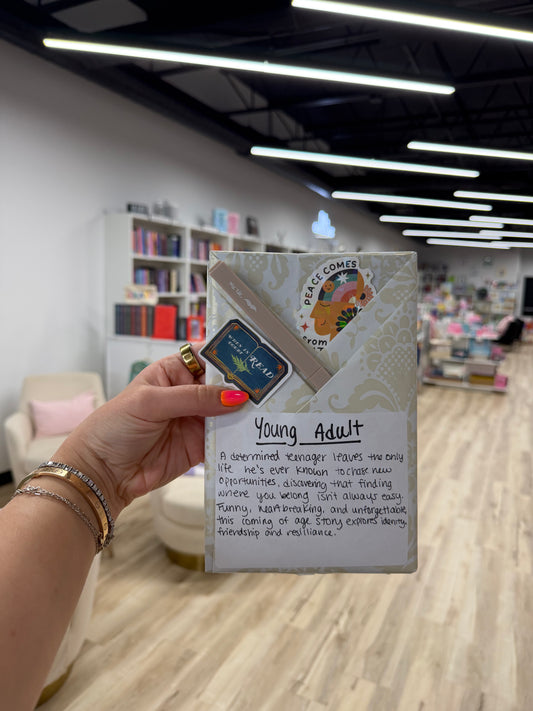 PEACE COMES
FROM
WHEN IN
DOUBT
READ
Young Adult
A determined teenager leaves the only
life he's ever known to chase new
opportunities, discovering that finding
where you belong isn't always easy.
Funny, heartbreaking, and unforgettable,
this coming of age story explores identity,
friendship and resiliance.